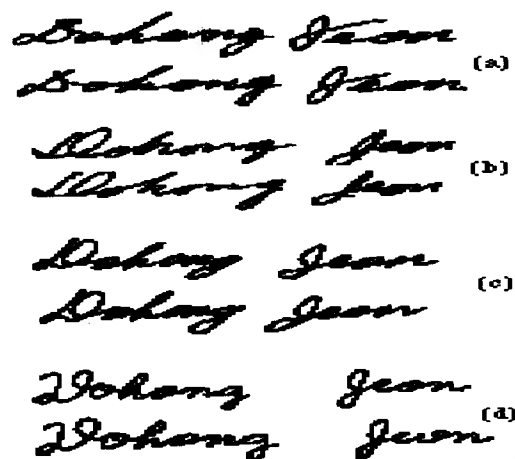 Dohong Jeon
(a)
Dohong Jeon
Dohong Jeon
(b)
Dohong Jeon
Dohong Jeon
(c)
Dohong Jeon
Dohong Jeon
(d)
Dohong Jeon